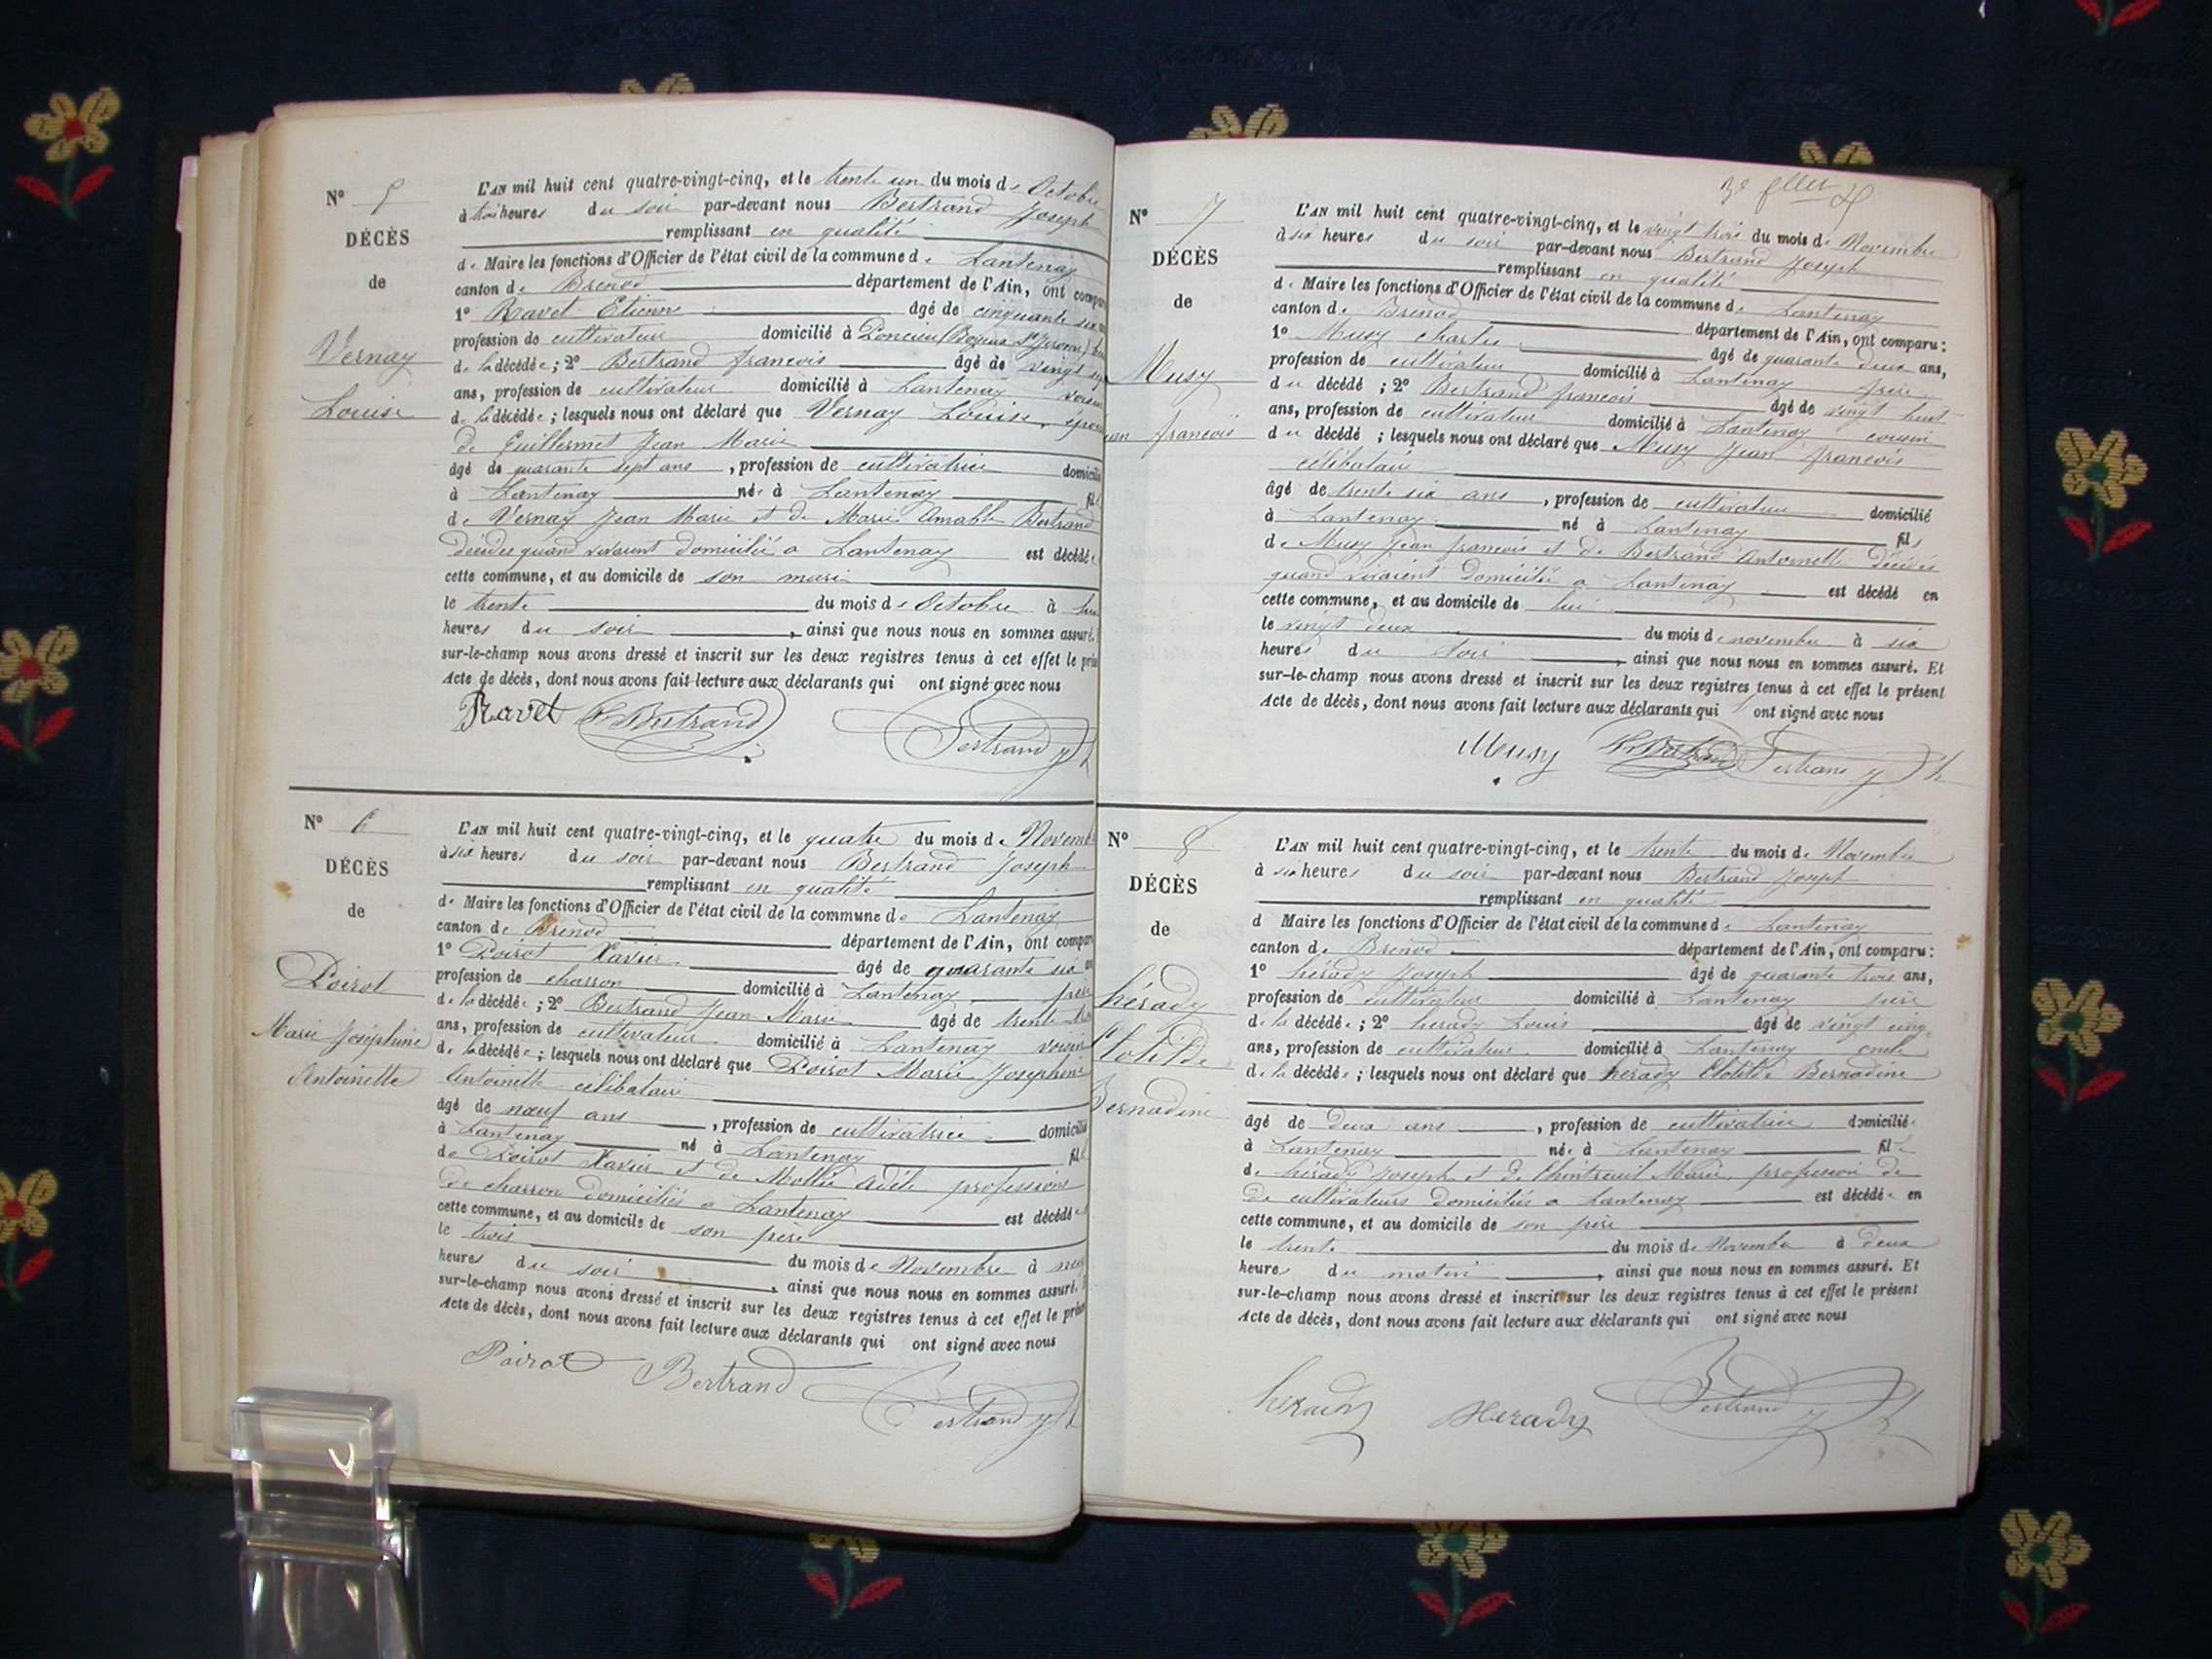 N° 5
DÉCÈS
de
Vernay
Louise
L'AN mil huit cent quatre-vingt-cinq, et le trente un du mois de Octobre
à trois heures du soir par-devant nous Bertrand Joseph
remplissant en qualité
de Maire les fonctions d'Officier de l'état civil de la commune de Lantenay
canton de Brenod département de l'Ain, ont compar
1° Ravet Etienne âgé de cinquante six
profession de cultivateur domicilié à Poncieu (Boyeux St Jerome)
de la décédée; 2° Bertrand francois âgé de vingt
ans, profession de cultivateur domicilié à Lantenay
de la décédée; lesquels nous ont déclaré que Vernay Louise, épouse
de Guillermet Jean Marie
âgé de quarante sept ans, profession de cultivatrice domicilié
à Lantenay née à Lantenay fil
de Vernay Jean Marie et de Marie Amable Bertrand
décédés quand vivaient domiciliés a Lantenay est décédée
cette commune, et au domicile de son mari
le trente du mois de Octobre à
heures du soir, ainsi que nous nous en sommes assuré.
sur-le-champ nous avons dressé et inscrit sur les deux registres tenus à cet effet le
Acte de décès, dont nous avons fait lecture aux déclarants qui ont signé avec nous
Ravet F. Bertrand Bertrand Jh
N° 6
DÉCÈS
de
Poirot
Marie Joséphine
Antoinette
L'AN mil huit cent quatre-vingt-cinq, et le quatre du mois de Novem
à six heures du soir par-devant nous Bertrand Joseph
remplissant en qualité
de Maire les fonctions d'Officier de l'état civil de la commune de Lantenay
canton de Brenod département de l'Ain, ont compar
1° Poirot Xavier âgé de quarante six
profession de charron domicilié à Lantenay père
de la décédée; 2° Bertrand Jean Marie âgé de trente
ans, profession de cultivateur domicilié à Lantenay voisin
de la décédée; lesquels nous ont déclaré que Poirot Marie Josephine
Antoinette célibataire
âgé de nœuf ans, profession de cultivatrice domicilié
à Lantenay né à Lantenay fil
de Poirot Xavier et de Mollie Adèle professions
de charron domiciliés a Lantenay est décédée
cette commune, et au domicile de son père
le trois du mois de Novembre à
heures du soir, ainsi que nous nous en sommes assuré.
sur-le-champ nous avons dressé et inscrit sur les deux registres tenus à cet effet le
Acte de décès, dont nous avons fait lecture aux déclarants qui ont signé avec nous
Poirot Bertrand Bertrand Jh
N° 7
DÉCÈS
de
Musy
francois
L'AN mil huit cent quatre-vingt-cinq, et le vingt trois du mois de Novembre
à six heures du soir par-devant nous Bertrand Joseph
remplissant en qualité
de Maire les fonctions d'Officier de l'état civil de la commune de Lantenay
canton de Brenod département de l'Ain, ont comparu:
1° Musy charles âgé de quarante deux ans,
profession de cultivateur domicilié à Lantenay frère
du décédé; 2° Bertrand francois âgé de vingt huit
ans, profession de cultivateur domicilié à Lantenay cousin
du décédé; lesquels nous ont déclaré que Musy Jean francois
célibataire
âgé de trente six ans, profession de cultivateur domicilié
à Lantenay né à Lantenay fils
de Musy Jean francois et de Bertrand Antoinette décédés
quand vivaient domiciliés a Lantenay est décédé en
cette commune, et au domicile de lui
le vingt deux du mois de novembre à six
heures du soir, ainsi que nous nous en sommes assuré. Et
sur-le-champ nous avons dressé et inscrit sur les deux registres tenus à cet effet le présent
Acte de décès, dont nous avons fait lecture aux déclarants qui ont signé avec nous
Musy F. Bertrand Bertrand Jh
N° 8
DÉCÈS
de
hérady
Clotilde
Bernadine
L'AN mil huit cent quatre-vingt-cinq, et le trente du mois de Novembre
à six heures du soir par-devant nous Bertrand Joseph
remplissant en qualité
d Maire les fonctions d'Officier de l'état civil de la commune de Lantenay
canton de Brenod département de l'Ain, ont comparu:
1° hérady Joseph âgé de quarante trois ans,
profession de cultivateur domicilié à Lantenay père
de la décédée; 2° herady Louis âgé de vingt cinq
ans, profession de cultivateur domicilié à Lantenay oncle
de la décédée; lesquels nous ont déclaré que herady Clotilde Bernadine
âgé de deux ans, profession de cultivatrice domicilié
à Lantenay née à Lantenay fille
de hérady Joseph et de Chintreuil Marie, profession de
de cultivateurs domiciliés a Lantenay est décédée en
cette commune, et au domicile de son père
le trente du mois de Novembre à deux
heures du matin, ainsi que nous nous en sommes assuré. Et
sur-le-champ nous avons dressé et inscrit sur les deux registres tenus à cet effet le présent
Acte de décès, dont nous avons fait lecture aux déclarants qui ont signé avec nous
herady Herady Bertrand Jh